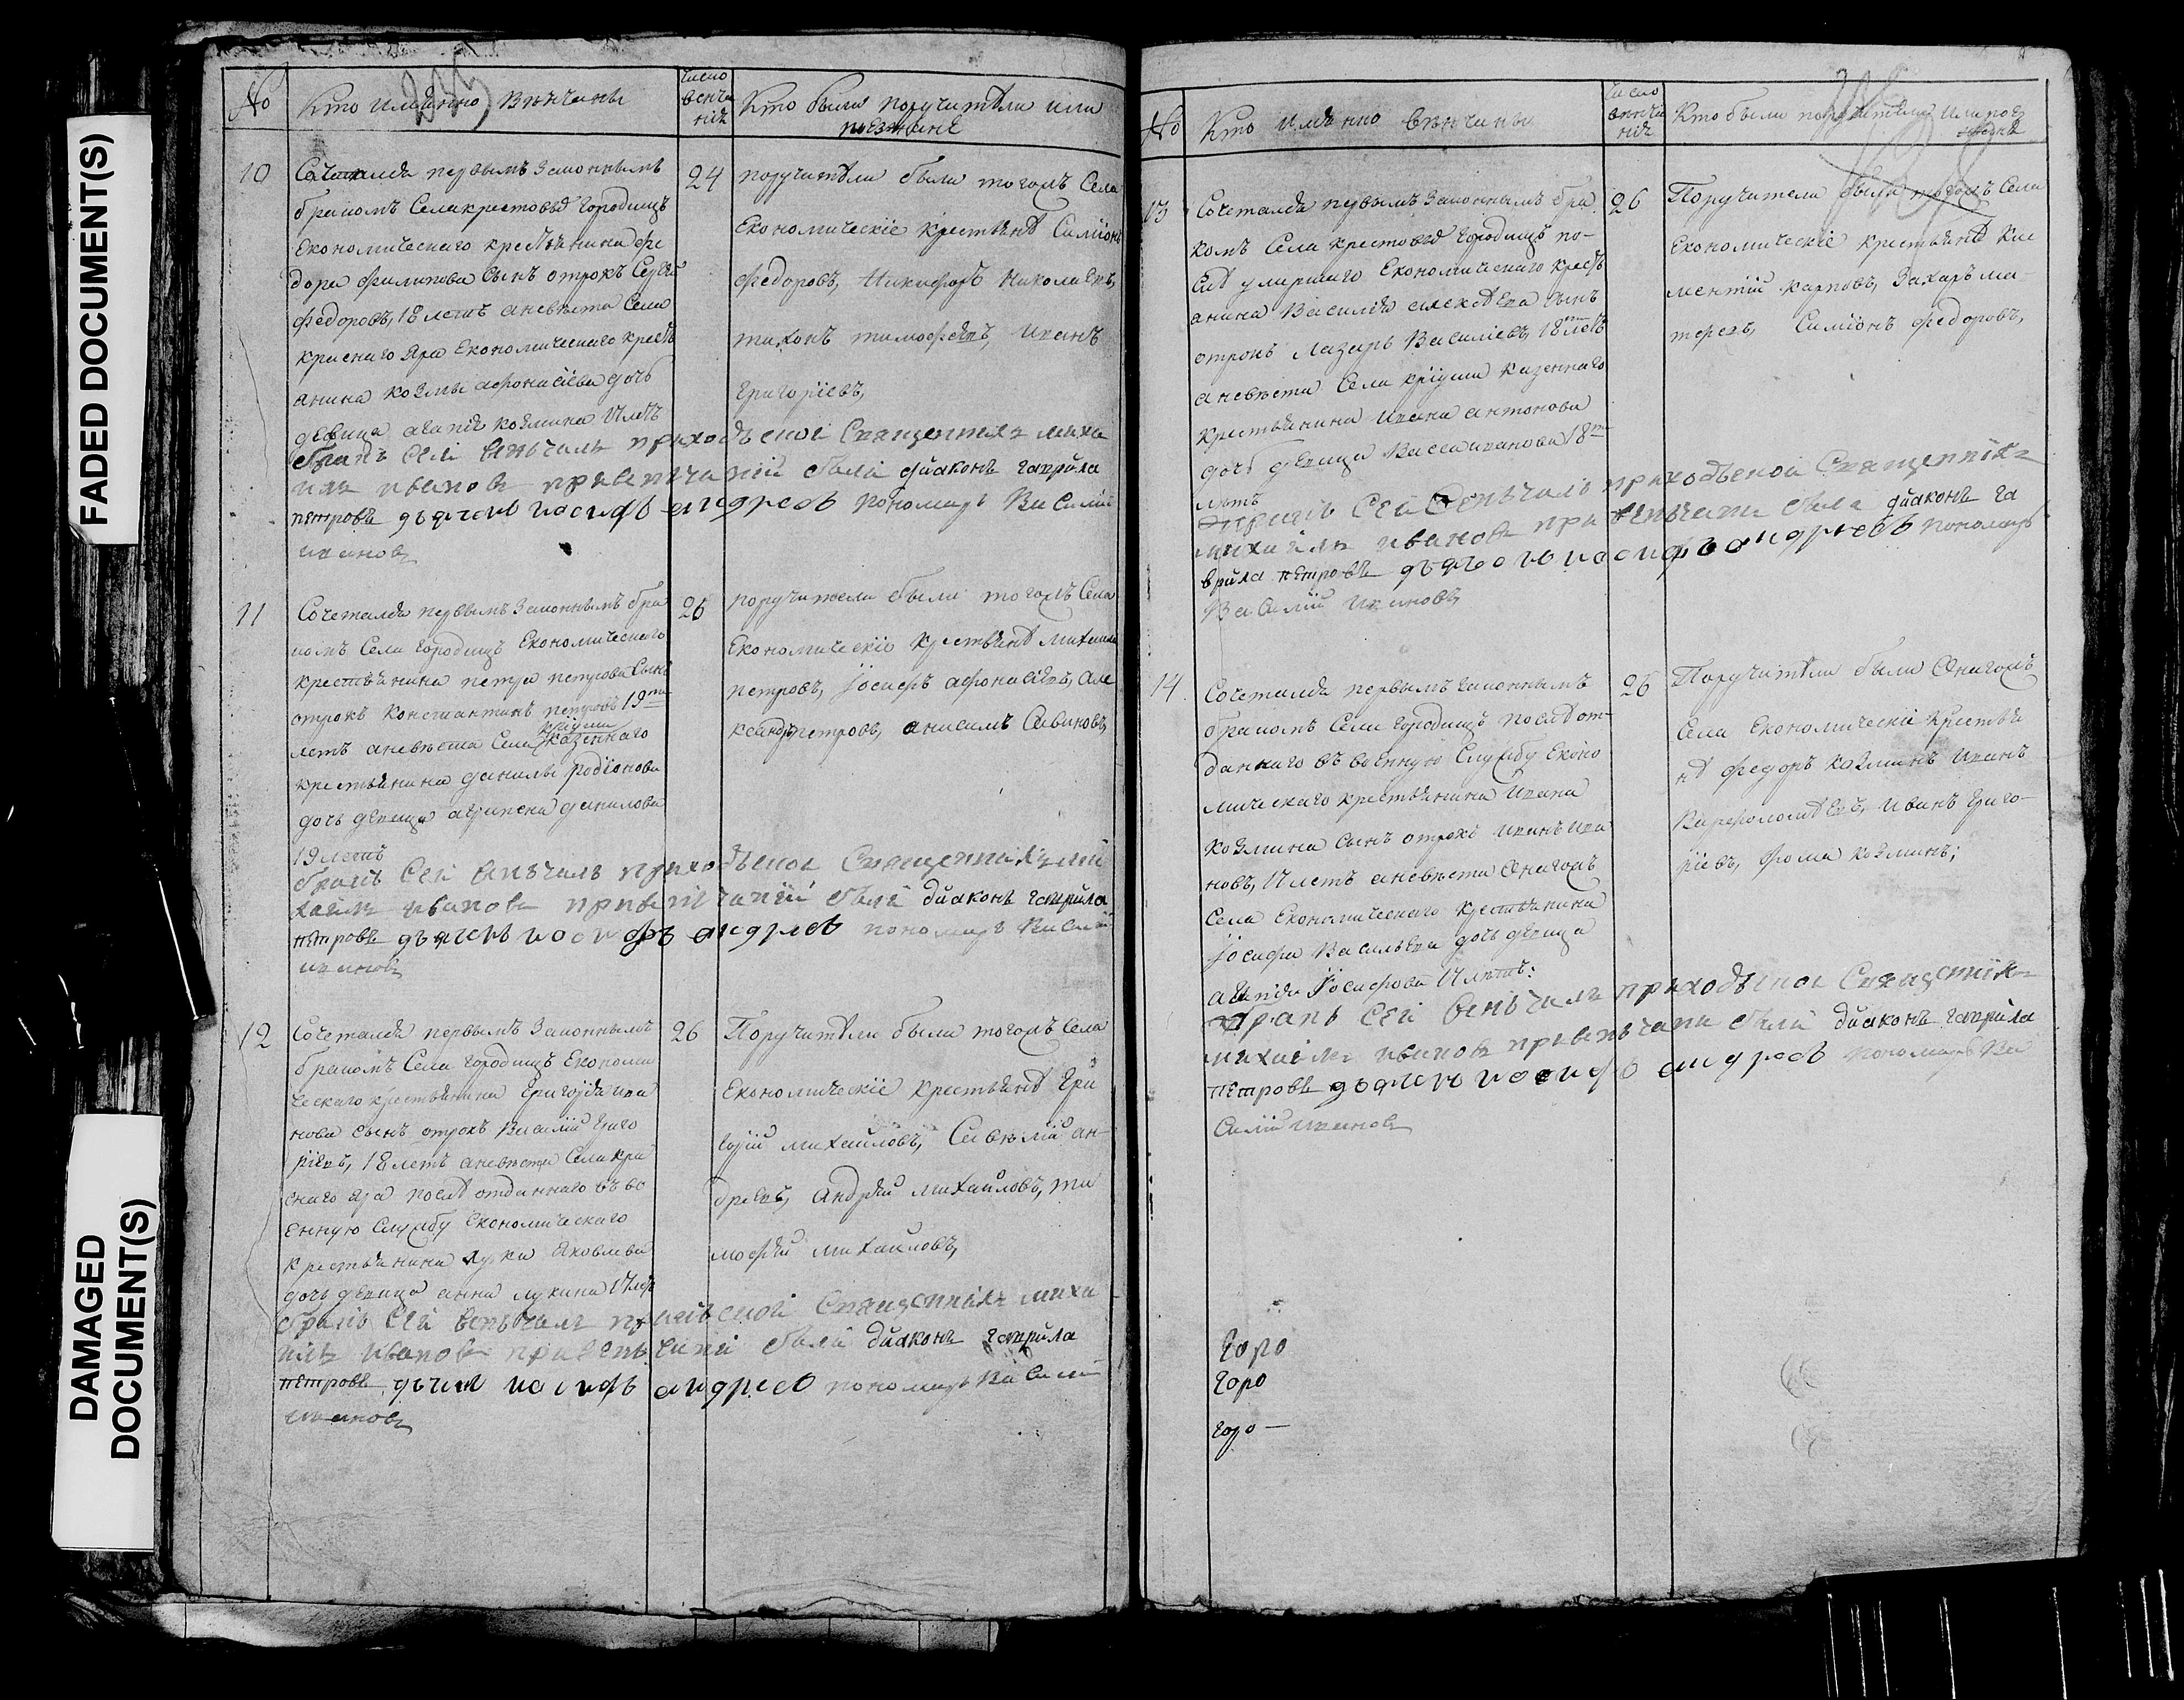 FADED DOCUMENT(S)
DAMAGED DOCUMENT(S)
№
Кто имянно Венчаны
число венчания
Кто были поручители или поезжане
10
Сочетался первымъ законнымъ
бракомъ Села крестовыхъ Городищъ
Економическаго крестьянина Фе
дора Филипова сынъ отрокъ Сергей
Федоровъ, 18 летъ аневѣста Села
краснаго Яра Економическаго кресть
анина козмы афонасіева дочь
девица козмина 17 летъ
бракъ сей венчалъ приходской Священникъ миха
илъ ивановъ при венчаніи были діаконъ гаврила
петровъ дьячокъ иосифъ андреевъ пономарь Василий
ивановъ
24
поручители были тогожъ Села
Економическіе крестьяне Симіонъ
Федоровъ, Никифоръ Николаевъ,
тихонъ тимофеевъ, иванъ
Григоріевъ,
11
Сочетался первымъ Законнымъ бра
комъ Села Городищъ Економическаго
крестьянина петра петрова сынъ
отрокъ Константинъ петровъ 19ти
летъ аневѣста Села кріуши казеннаго
крестьянина данилы родіонова
дочь девица агрипена данилова
19 летъ
бракъ сей венчалъ приходской Священникъ ми
хаилъ ивановъ при венчаніи были діаконъ гаврила
петровъ дьячокъ иосифъ андреевъ пономарь Василий
ивановъ
26
поручители были тогожъ Села
Економическіе крестьяне михаила
петровъ, Іосифъ афонасіевъ, але
ксандръ петровъ, анисимъ Савиновъ,
12
Сочетался первымъ Законнымъ
бракомъ Села Городищъ Економи
ческаго крестьянина Григорья ива
нова сынъ отрокъ Василій Григо
ріевъ, 18 летъ аневѣста Села кра
снаго яра после отданнаго въ во
енную Службу Економическаго
крестьянина луки Яковлева
дочь девица анна лукина 17 летъ
бракъ сей венчалъ приходской Священникъ миха
илъ ивановъ при венчаніи были діаконъ гаврила
петровъ дьячокъ иосифъ андреевъ пономарь Василий
ивановъ
26
Поручители были тогожъ Села
Економическіе крестьяне Гри
горій михайловъ, Савелій ан-
дреевъ, Андрей михайловъ, ти
мофей михайловъ,
№
Кто имянно венчаны
число венчания
Кто были поручители или поезжане
13
Сочетался первымъ Законнымъ бра
комъ Села крестовыхъ Городищъ по-
сле умершаго Економическаго кресть
анина Василія алексеева сынъ
отрокъ Лазарь Василіевъ, 18 летъ
аневѣста Села кріуши казеннаго
крестьянина ивана антонова
дочь девица Васса иванова 18ти
летъ
бракъ сей венчалъ приходской Священникъ
михаилъ ивановъ при венчани были діаконъ га
врила петровъ дьячокъ иосифъ андреевъ пономарь
Василій ивановъ
26
Поручители были тогожъ Села
Економическіе крестьяне кле
ментій карповъ, Захаръ ма
Симіонъ федоровъ,
14
Сочетался первымъ законнымъ
бракомъ Села Городищъ после от-
даннаго въ военную Службу Еконо
мическаго крестьянина ивана
козмина сынъ отрокъ иванъ ива
новъ, 17 летъ аневѣста Онагожъ
Села Економическаго крестьянина
Іосифа Васильева дочь девица
Іосифова 17 летъ:
бракъ сей венчалъ приходской Священникъ
михаилъ ивановъ при венчани были діаконъ гаврила
петровъ дьячокъ иосифъ андреевъ пономарь Ва
силій ивановъ
26
Поручители были Онагожъ
Села Економическіе крестья
не федоръ козминъ иванъ
Варфоломеевъ, иванъ Григо-
ріевъ, фома козминъ;
Горо
Горо
Горо —